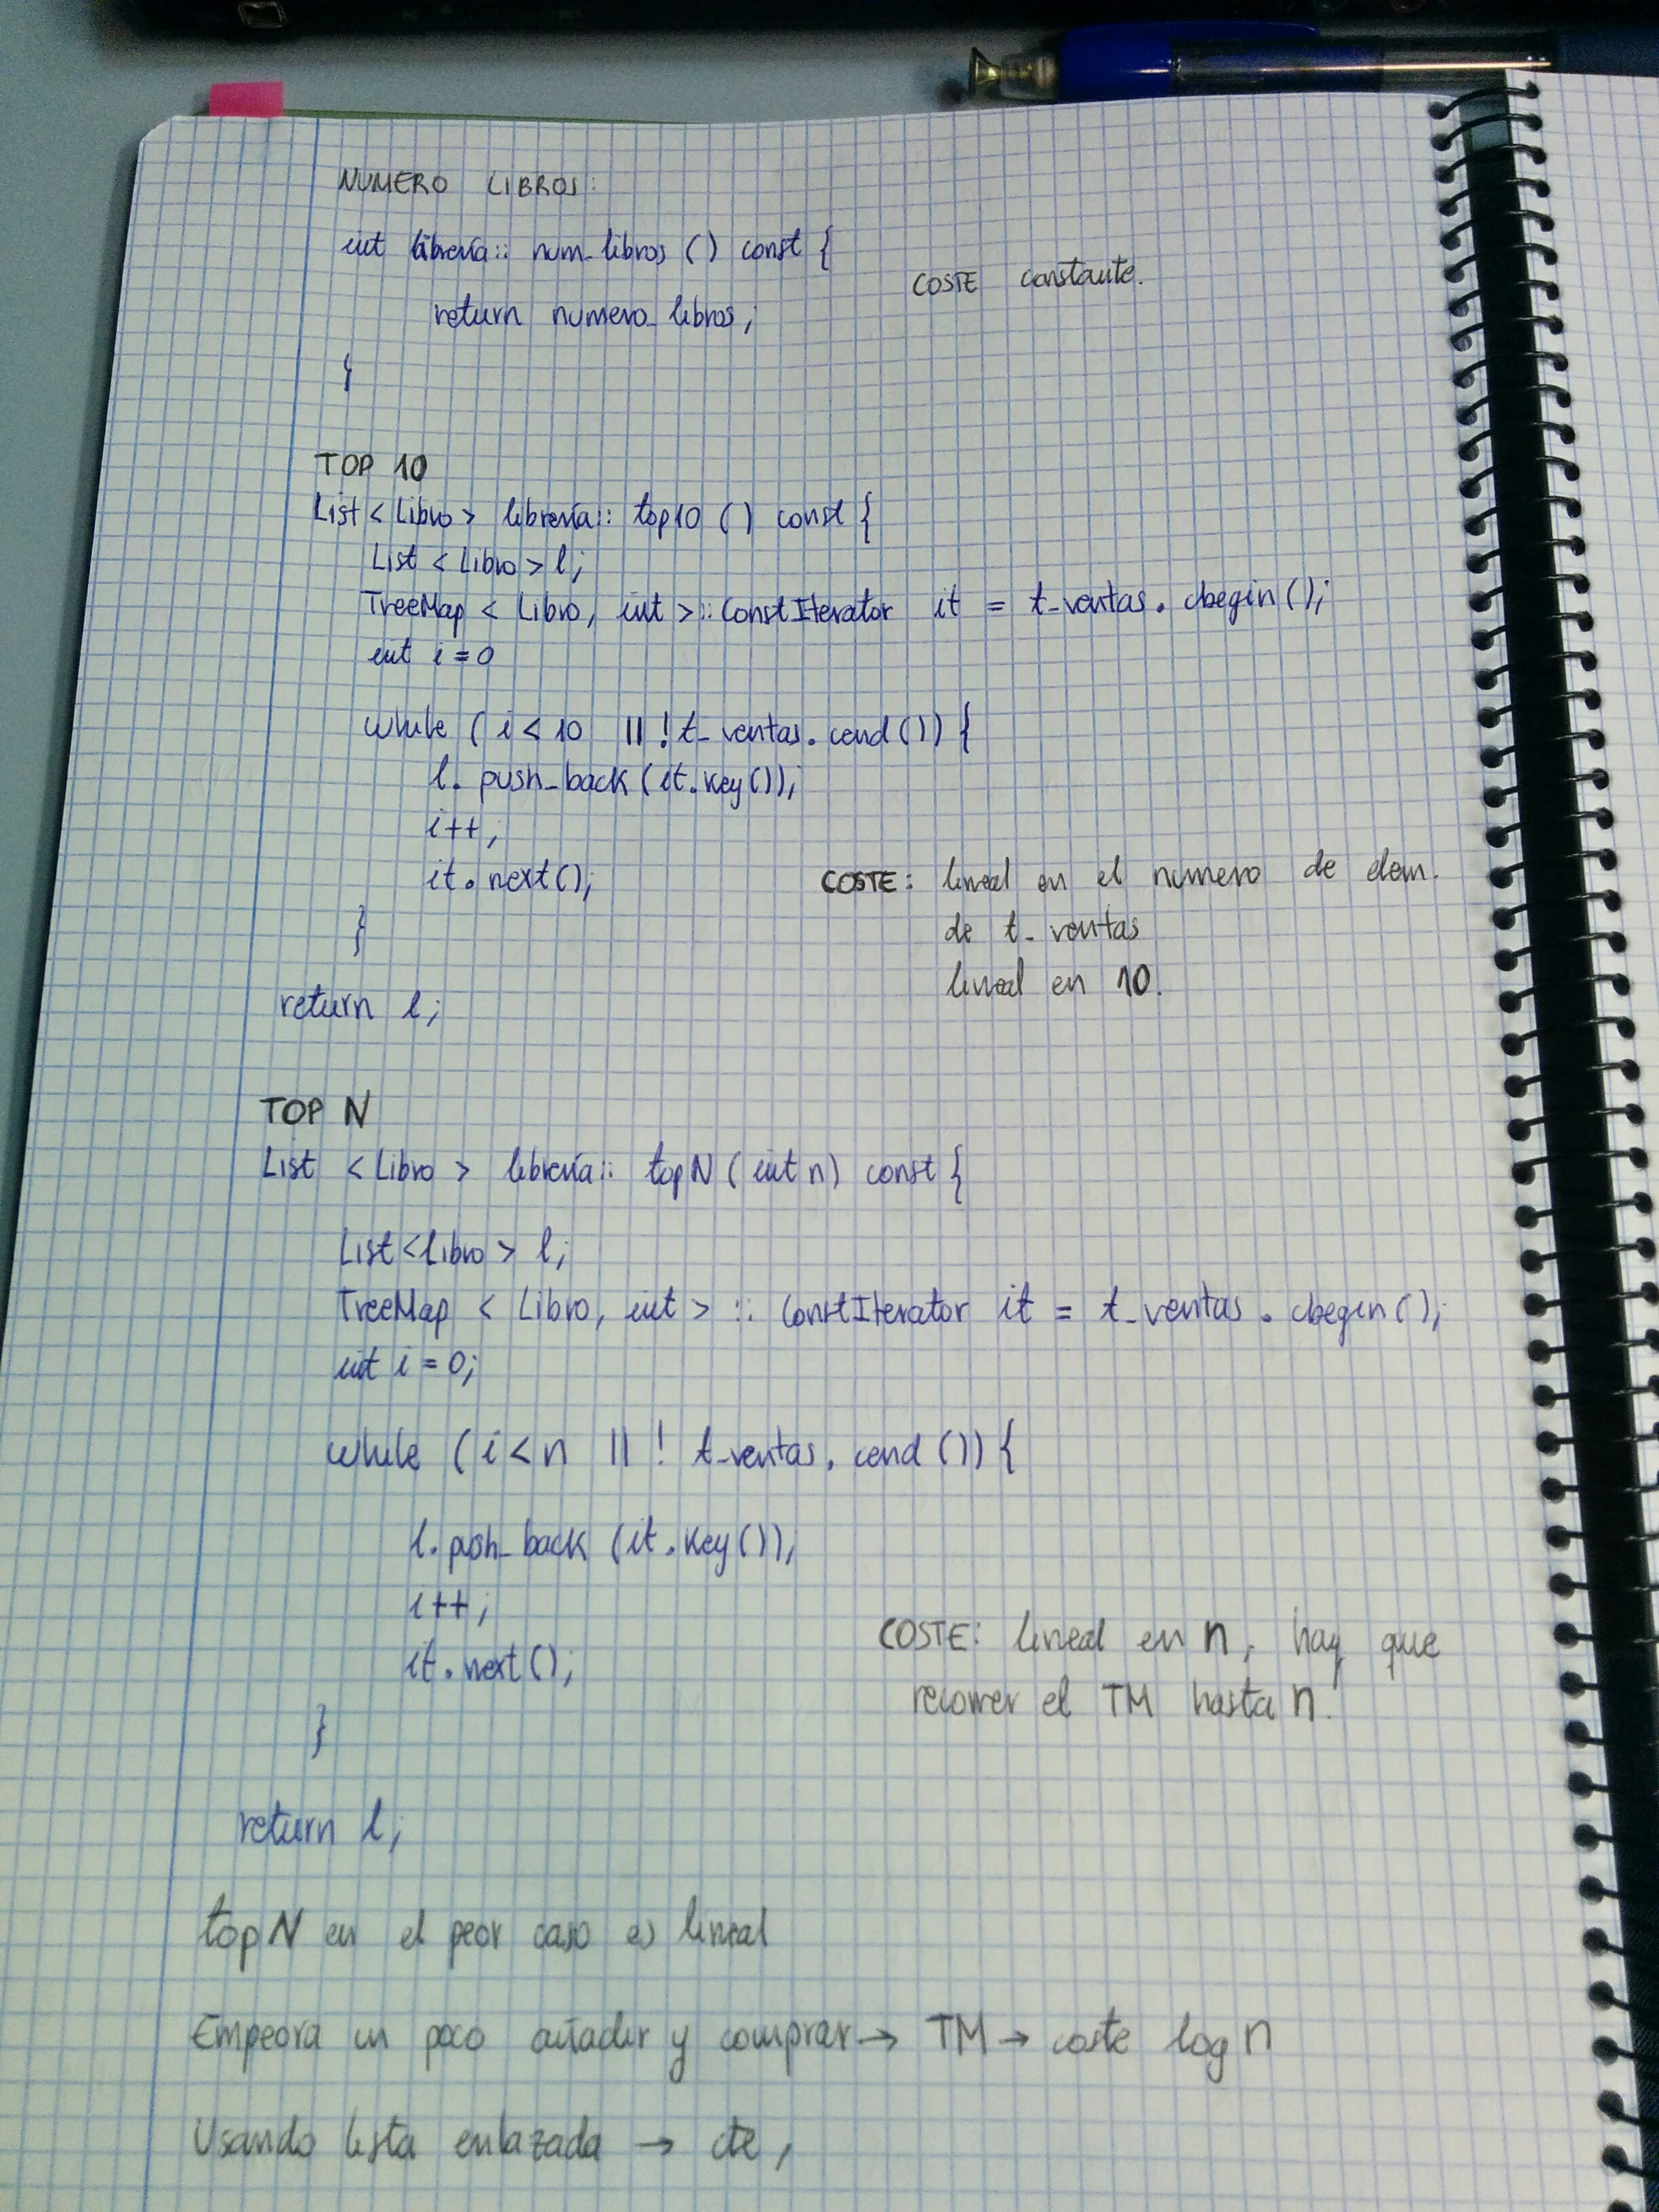 NUMERO LIBROS:
int librería:: num_libros () const {
COSTE constante.
return numero_libros;
}
TOP 10
List < Libro > librería:: top10 () const {
List < Libro > l;
TreeMap < Libro, int > :: ConstIterator it = t_ventas. cbegin();
int i = 0
while ( i < 10 || ! t_ventas. cend ()) {
l. push_back (it. key());
i++;
it. next();
COSTE: lineal en el número de elem.
}
de t_ventas
lineal en 10.
return l;
TOP N
List < Libro > librería:: topN ( int n) const {
List<Libro > l;
TreeMap < Libro, int > :: ConstIterator it = t_ventas . cbegin ();
int i = 0;
while ( i < n || ! t_ventas. cend ()) {
l. push_back (it. key());
i++;
COSTE: lineal en n, hay que
it. next();
recorrer el TM hasta n.
}
return l;
topN en el peor caso es lineal
Empeora un poco añadir y comprar → TM → coste log n
Usando lista enlazada → cte,